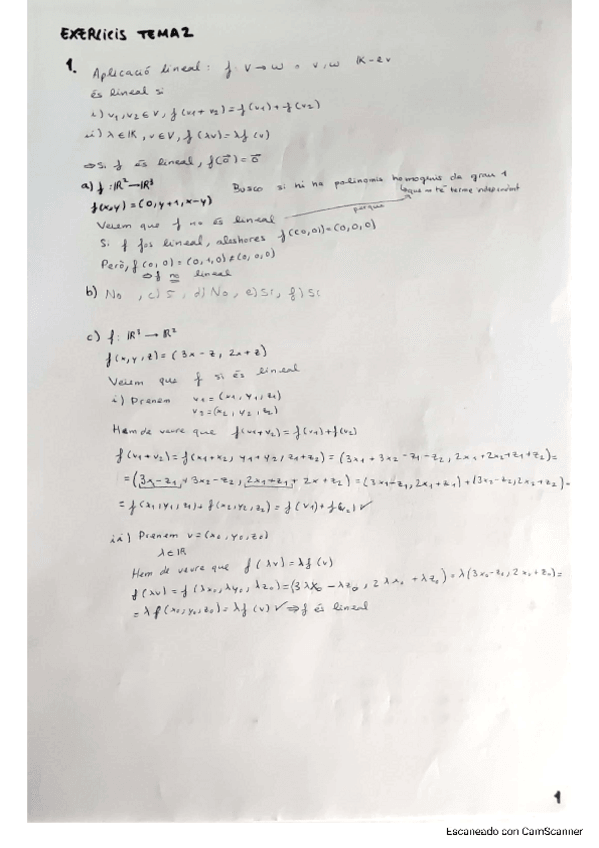 EXERCICIS TEMA 2
1. Aplicació lineal: f: V → W o V, W K-ev
és lineal si
i) v1, v2 ∈ V, f(v1+v2) = f(v1) + f(v2)
ii) λ ∈ K, v ∈ V, f(λv) = λf(v)
⇒ Si f és lineal, f(0⃗) = 0⃗
a) f: ℝ² → ℝ³ Busco si hi ha polinomis homogenis de grau 1
f(x,y) = (0, y+1, x-y) que no té terme independent
Veiem que f no és lineal perque
Si f fos lineal, aleshores f(0,0) = (0,0,0)
Però, f(0,0) = (0,1,0) ≠ (0,0,0)
⇒ f no lineal
b) No, c) Sí, d) No, e) Sí, f) Sí
c) f: ℝ³ → ℝ²
f(x,y,z) = (3x-z, 2x+z)
Veiem que f si és lineal
i) Prenem v1 = (x1, y1, z1)
v2 = (x2, y2, z2)
Hem de veure que f(v1+v2) = f(v1) + f(v2)
f(v1+v2) = f(x1+x2, y1+y2, z1+z2) = (3x1+3x2-z1-z2, 2x1+2x2+z1+z2) =
= (3x-z1, +3x2-z2, 2x1+z1, + 2x+z2) = (3x1-z1, 2x1+z1) + (3x2-z2, 2x2+z2) =
= f(x1,y1,z1) + f(x2,y2,z2) = f(v1) + f(v2) ✓
ii) Prenem v = (x0, y0, z0)
λ ∈ ℝ
Hem de veure que f(λv) = λf(v)
f(λv) = f(λx0, λy0, λz0) = (3λx0 - λz0, 2λx0 + λz0) = λ(3x0-z0, 2x0+z0) =
= λf(x0,y0,z0) = λf(v) ✓ ⇒ f és lineal
1
Escaneado con CamScanner